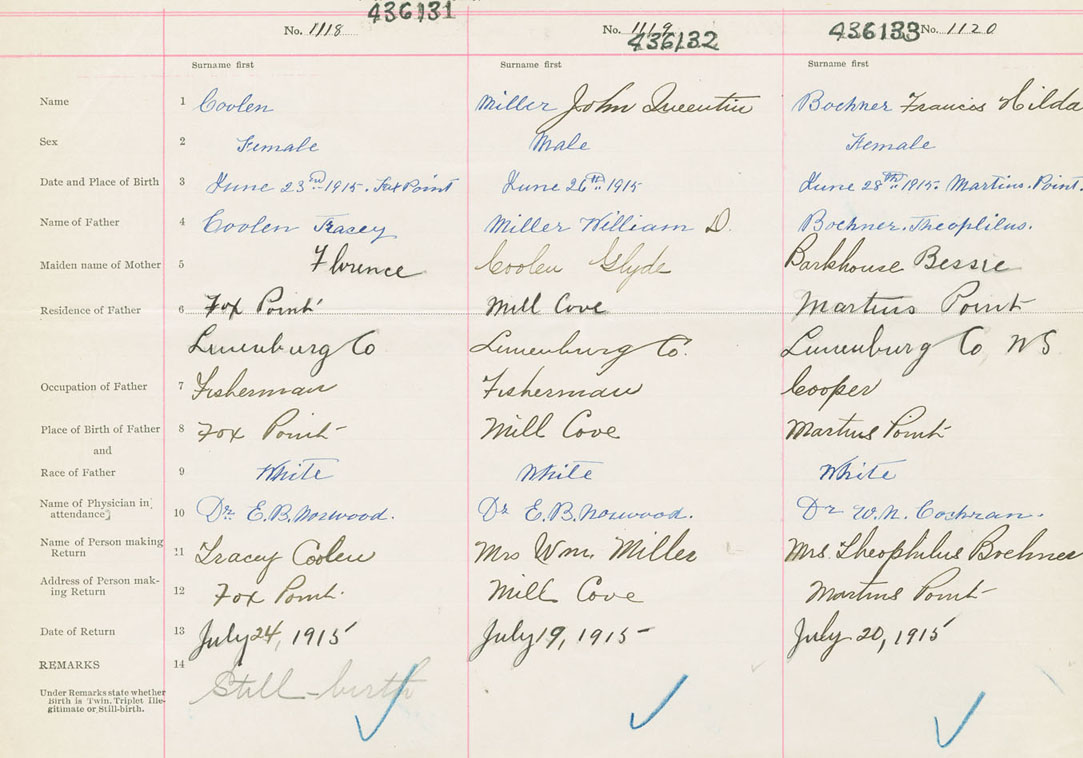 436131
No. 1118 No. 1119 436132 436133 No. 1120
Surname first Surname first Surname first
Name 1 Coolen Miller John Queentin Boehner Francis Hilda
Sex 2 Female Male Female
Date and Place of Birth 3 June 23rd 1915. Fox Point June 26th 1915 June 28th 1915. Martins. Point.
Name of Father 4 Coolen Tracey Miller William D. Boehner. Theophilus.
Maiden name of Mother 5 Florence Coolen Glyde Barkhouse Bessie
Residence of Father 6 Fox Point Mill Cove Martins Point
Lunenburg Co Lunenburg Co. Lunenburg Co NS
Occupation of Father 7 Fisherman Fisherman Cooper
Place of Birth of Father 8 Fox Point Mill Cove Martins Point
and
Race of Father 9 White White White
Name of Physician in
attendance 10 Dr. E.B. Norwood. Dr E.B. Norwood. Dr W.N. Cochran.
Name of Person making
Return 11 Tracey Coolen Mrs Wm. Miller Mrs. Theophilus Boehner
Address of Person mak-
ing Return 12 Fox Point. Mill Cove Martins Point
Date of Return 13 July 24, 1915 July 19, 1915 July 20, 1915
REMARKS 14 Still-birth
Under Remarks state whether
Birth is Twin. Triplet Ille-
gitimate or Still-birth.